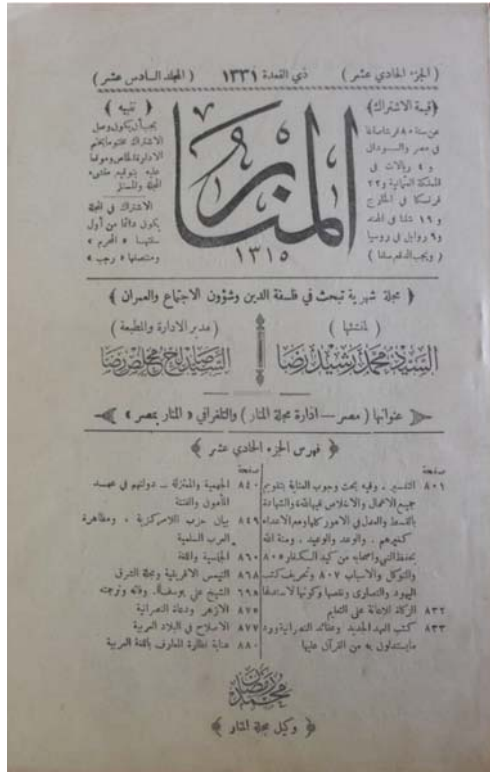 ( الجزء الحادي عشر ) ذي القعدة ١٣٣١ ( المجلد السادس عشر )
﴿قيمة الاشتراك﴾
عن سنة ٨٠ قرشا صاغا
في مصر والسودان
و ٤ ريالات في
المملكة العثمانية و٢٢
فرنكا في الخارج
و ١٦ شلنا في الهند
و٩ روابل في روسيا
( ويجب الدفع سلفا )
المنار
١٣١٥
﴿ تنبيه ﴾
يجب أن يكون وصل
الاشتراك مختوما بختم
الادارة الخاص وموقعا
عليه بتوقيع منشىء
المجلة والمستلم
الاشتراك في المجلة
يكون دائما من أول
سنتها « المحرم »
ومنتصفها « رجب »
﴿ مجلة شهرية تبحث في فلسفة الدين وشؤون الاجتماع والعمران ﴾
( لمنشئها )
السيد محمد رشيد رضا
( مدير الادارة والمطبعة )
السيد صالح مخلص رضا
عنوانها ( مصر — ادارة مجلة المنار ) والتلغرافي « المنار بمصر »
﴿ فهرس الجزء الحادي عشر ﴾
صفحة
٨٠١ التفسير . وفيه بحث وجوب العناية بتقويم
جميع الاعمال والاخلاص فيها لله والشهادة
بالقسط والعدل في الامور كلها ومع الاعداء
كغيرهم . والوعد والوعيد . ومنة الله
بحفظ النبي واصحابه من كيد الكفار ٨٠٥
والتوكل والاسباب ٨٠٧ وتحريف كتب
اليهود والنصارى ونقصها وكونها لا سند لها
٨٣٢ الزكاة للاعانة على التعليم
٨٣٣ كتب العهد الجديد وعقائد النصرانية ورد
ما يستدلون به من القرآن عليها
صفحة
٨٤٠ الجهمية والمعتزلة — دولتهم في عهد
المأمون والفتنة
٨٤٩ بيان حزب اللامركزية . ومظاهرة
العرب السلمية
٨٦٠ الجنسية واللغة
٨٦٨ التيمس الافريقية ومجلة الشرق
الشيخ علي يوسف . وفاته وترجمته
٨٧٥ الازهر ودعاة النصرانية
٨٧٧ الاصلاح في البلاد العربية
٨٨٠ عناية نظارة المعارف باللغة العربية
﴿ وكيل مجلة المنار ﴾